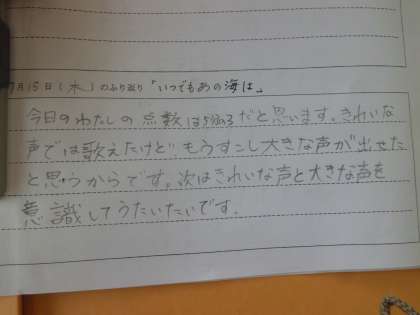 7月15日(木)のふり返り「いつでもあの海は」
今日のわたしの点数は5分の3だと思います。きれいな
声では歌えたけどもうすこし大きな声が出せた
と思うからです。次はきれいな声と大きな声を
意識してうたいたいです。